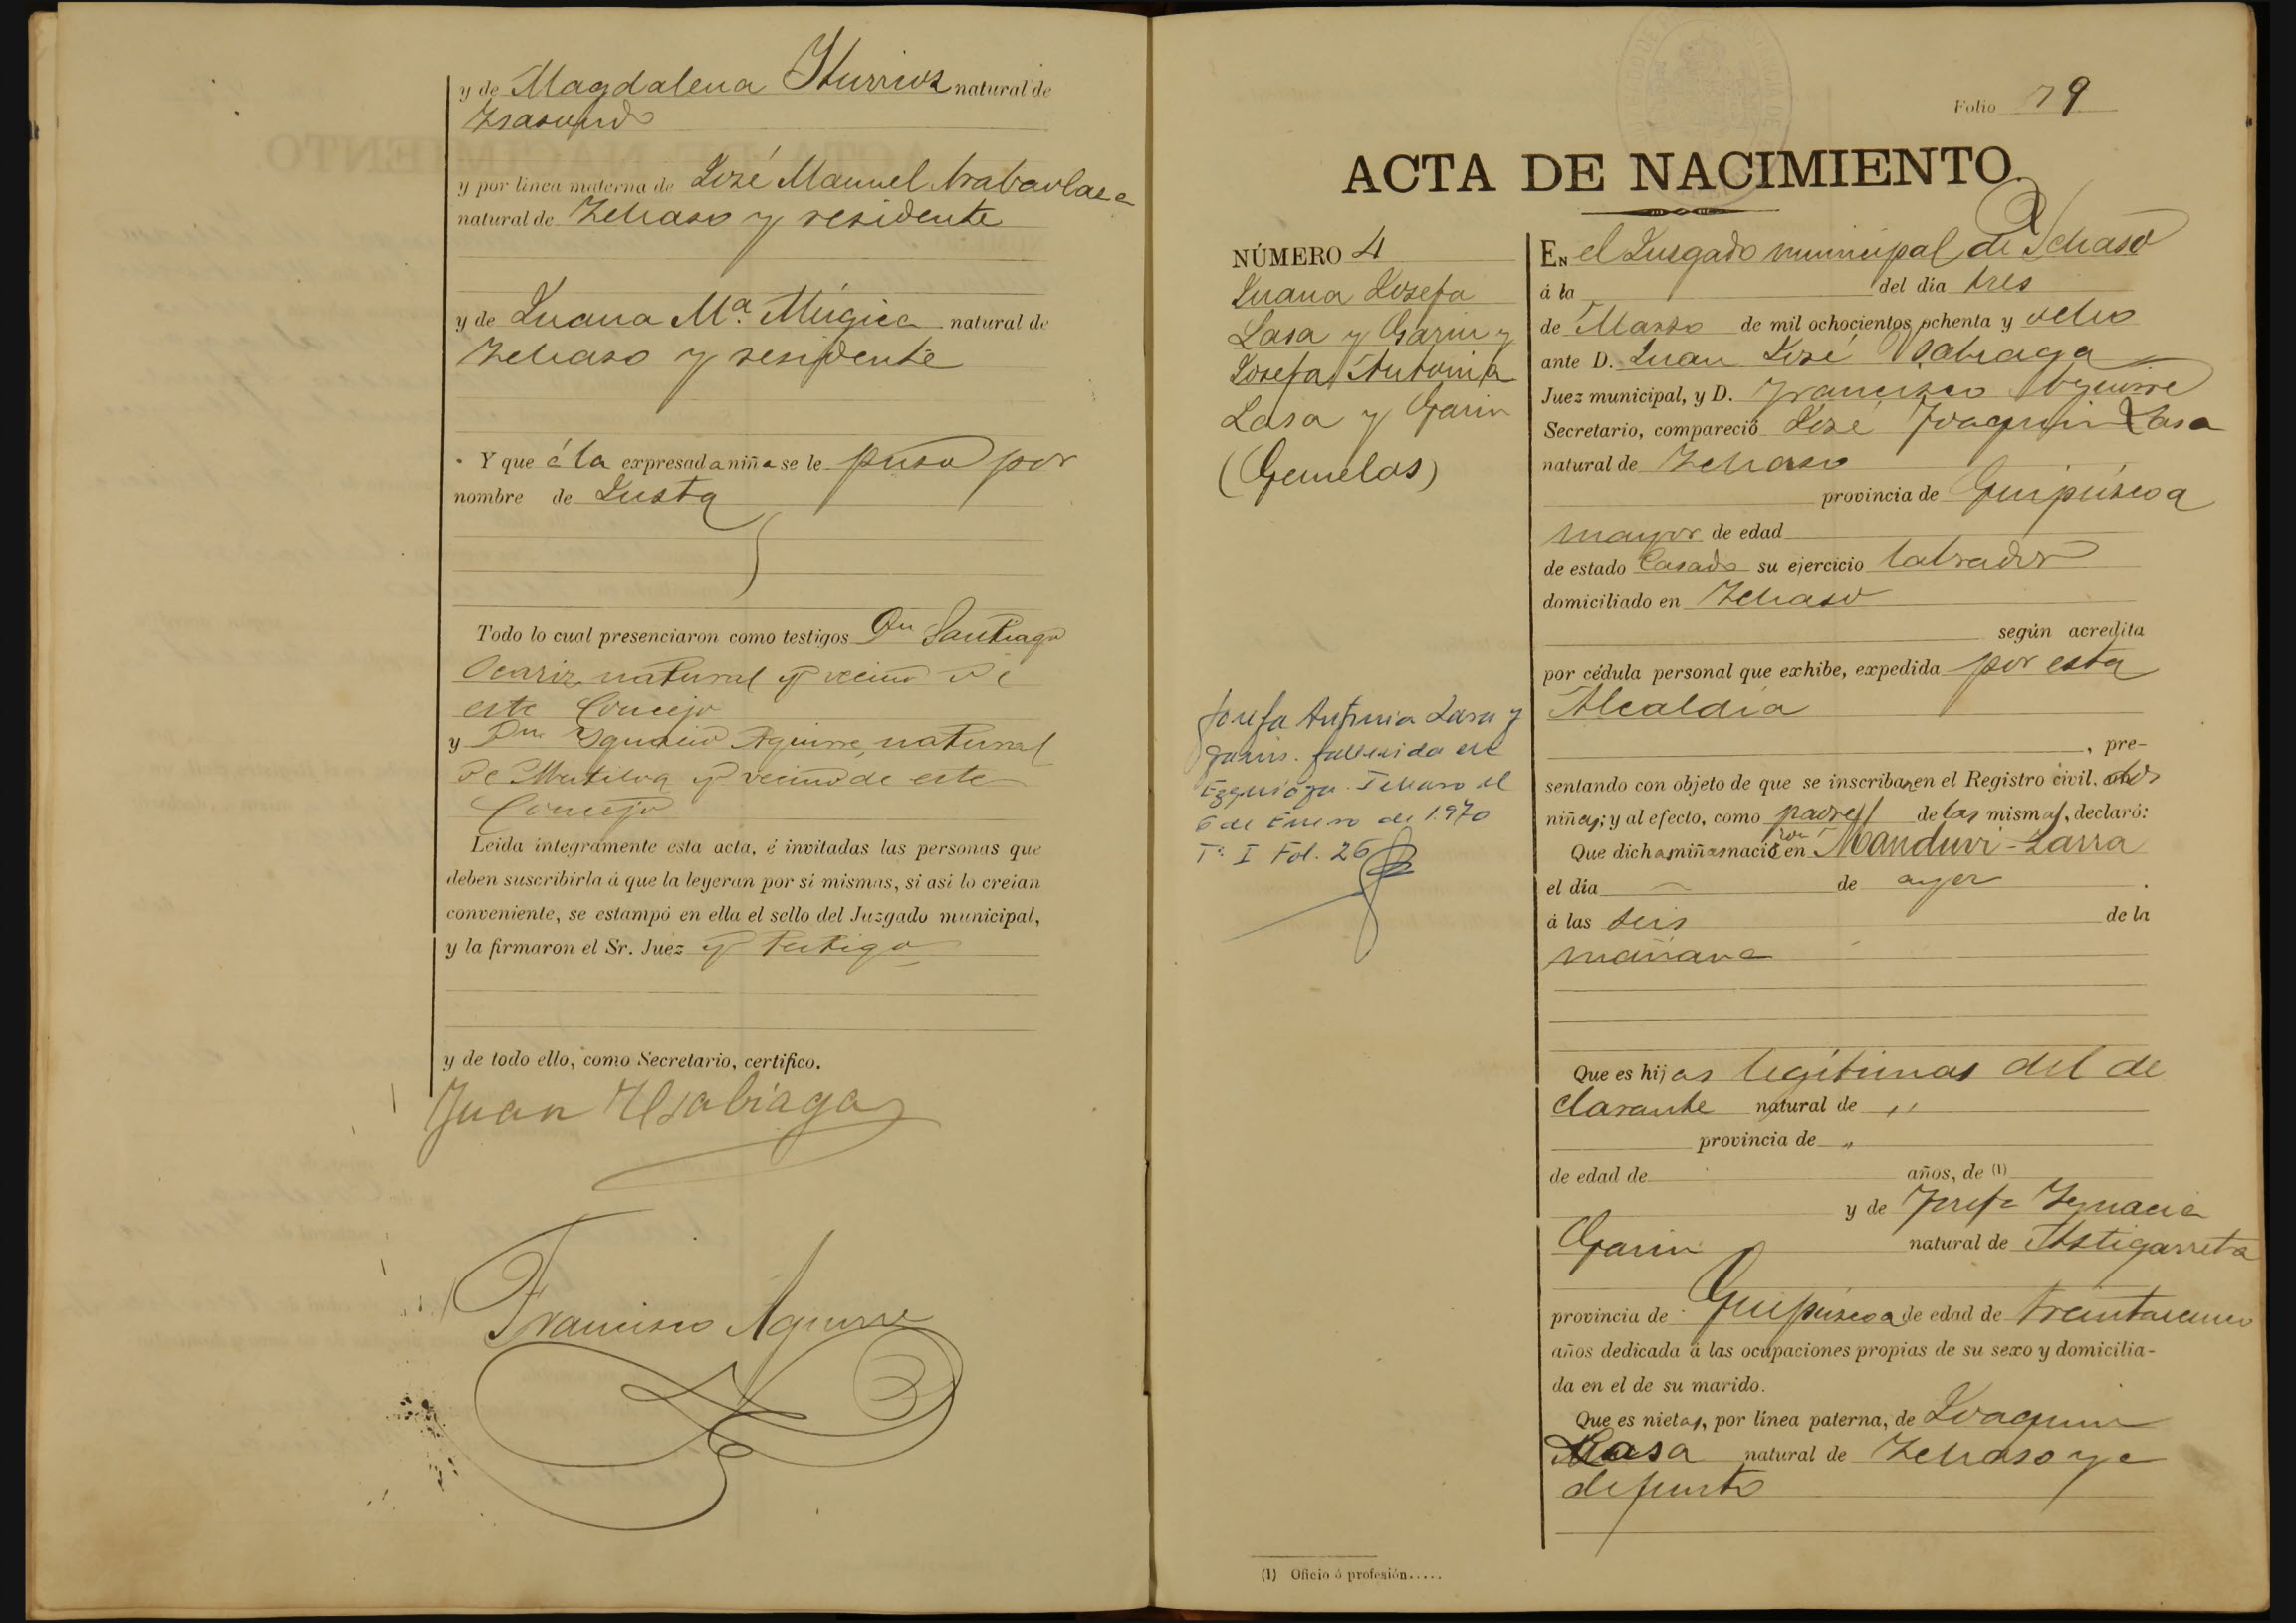 y de Magdalena Yturrioz natural de
Isasondo
y por línea materna de José Manuel Arabaolaza
natural de Ichaso y residente
y de Juana Mª. Múgica natural de
Ichaso y residente
Y que á la expresada niña se le puso por
nombre de Justa
Todo lo cual presenciaron como testigos Dn Santiago
Ocariz natural y vecino de
este Concejo
y Dn Ygnacio Aguirre, natural
de Mutiloa y vecino de este
Concejo
Leida integramente esta acta, é invitadas las personas que
deben suscribirla á que la leyeran por sí mismas, si así lo creían
conveniente, se estampó en ella el sello del Juzgado municipal,
y la firmaron el Sr. Juez y testigo
y de todo ello, como Secretario, certifico.
Juan Usabiaga
Francisco Aguirre
Folio 79
ACTA DE NACIMIENTO.
NÚMERO 4
Juana Josefa
Lasa y Garin y
Josefa Antonia
Lasa y Garin
(Gemelas)
Josefa Antonia Lasa y
Garin. fallecida en
Ezquioga-Ichaso el
6 de Enero de 1970
Tº I Fol. 26
En el Jusgado municipal de Ichaso
á la del dia tres
de Marzo de mil ochocientos ochenta y ocho
ante D. Juan José Usabiaga
Juez municipal, y D. Francisco Aguirre
Secretario, compareció José Joaquin Lasa
natural de Ichaso
provincia de Guipúzcoa
mayor de edad
de estado Casado su ejercicio labrador
domiciliado en Ichaso
según acredita
por cédula personal que exhibe, expedida por esta
Alcaldía
, pre-
sentando con objeto de que se inscriban en el Registro civil, dos
niñas; y al efecto, como padre de las mismas, declaró:
Que dichas niñas nacieron en Manduvi-Zarra
el día de ayer
á las seis de la
mañana
Que es hijas legítimas del de
clarante natural de „
provincia de „
de edad de años, de (1)
y de Josefa Ignacia
Garin natural de Astigarreta
provincia de Guipúzcoa de edad de treintacinco
años dedicada á las ocupaciones propias de su sexo y domicilia-
da en el de su marido.
Que es nietas, por línea paterna, de Joaquin
Lasa natural de Ichaso ya
difunto
(1) Oficio ó profesión.....